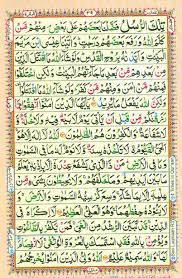 تِلْكَ الرُّسُلُ فَضَّلْنَا بَعْضَهُمْ عَلٰى بَعْضٍ ۘ مِنْهُمْ مَّنْ
كَلَّمَ اللّٰهُ وَرَفَعَ بَعْضَهُمْ دَرَجٰتٍ ؕ وَاٰتَيْنَا عِيْسَى ابْنَ مَرْيَمَ
الْبَيِّنٰتِ وَاَيَّدْنٰهُ بِرُوْحِ الْقُدُسِ ؕ وَلَوْ شَآءَ اللّٰهُ مَا اقْتَتَلَ الَّذِيْنَ
مِنْۢ بَعْدِهِمْ مِّنْۢ بَعْدِ مَا جَآءَتْهُمُ الْبَيِّنٰتُ وَلٰكِنِ اخْتَلَفُوْا فَمِنْهُمْ
مَّنْ اٰمَنَ وَمِنْهُمْ مَّنْ كَفَرَ ؕ وَلَوْ شَآءَ اللّٰهُ مَا اقْتَتَلُوْا وَلٰكِنَّ
اللّٰهَ يَفْعَلُ مَا يُرِيْدُ يٰۤاَيُّهَا الَّذِيْنَ اٰمَنُوْۤا اَنْفِقُوْا مِمَّا رَزَقْنٰكُمْ
مِّنْ قَبْلِ اَنْ يَّاْتِيَ يَوْمٌ لَّا بَيْعٌ فِيْهِ وَلَا خُلَّةٌ وَّلَا
شَفَاعَةٌ ؕ وَالْكٰفِرُوْنَ هُمُ الظّٰلِمُوْنَ اَللّٰهُ لَاۤ اِلٰهَ اِلَّا هُوَ
اَلْحَيُّ الْقَيُّوْمُ لَا تَاْخُذُهٗ سِنَةٌ وَّلَا نَوْمٌ ؕ لَهٗ مَا فِي السَّمٰوٰتِ
وَمَا فِي الْاَرْضِ ؕ مَنْ ذَا الَّذِيْ يَشْفَعُ عِنْدَهٗۤ اِلَّا بِاِذْنِهٖ ؕ يَعْلَمُ
مَا بَيْنَ اَيْدِيْهِمْ وَمَا خَلْفَهُمْ ۚ وَلَا يُحِيْطُوْنَ بِشَيْءٍ مِّنْ
عِلْمِهٖۤ اِلَّا بِمَا شَآءَ ۚ وَسِعَ كُرْسِيُّهُ السَّمٰوٰتِ وَالْاَرْضَ ۚ
وَلَا يَـُٔوْدُهٗ حِفْظُهُمَا ۚ وَهُوَ الْعَلِيُّ الْعَظِيْمُ لَاۤ اِكْرَاهَ فِي
الدِّيْنِ قَدْ تَّبَيَّنَ الرُّشْدُ مِنَ الْغَيِّ ۚ فَمَنْ يَّكْفُرْ بِالطَّاغُوْتِ وَ
يُؤْمِنْۢ بِاللّٰهِ فَقَدِ اسْتَمْسَكَ بِالْعُرْوَةِ الْوُثْقٰى لَا انْفِصَامَ